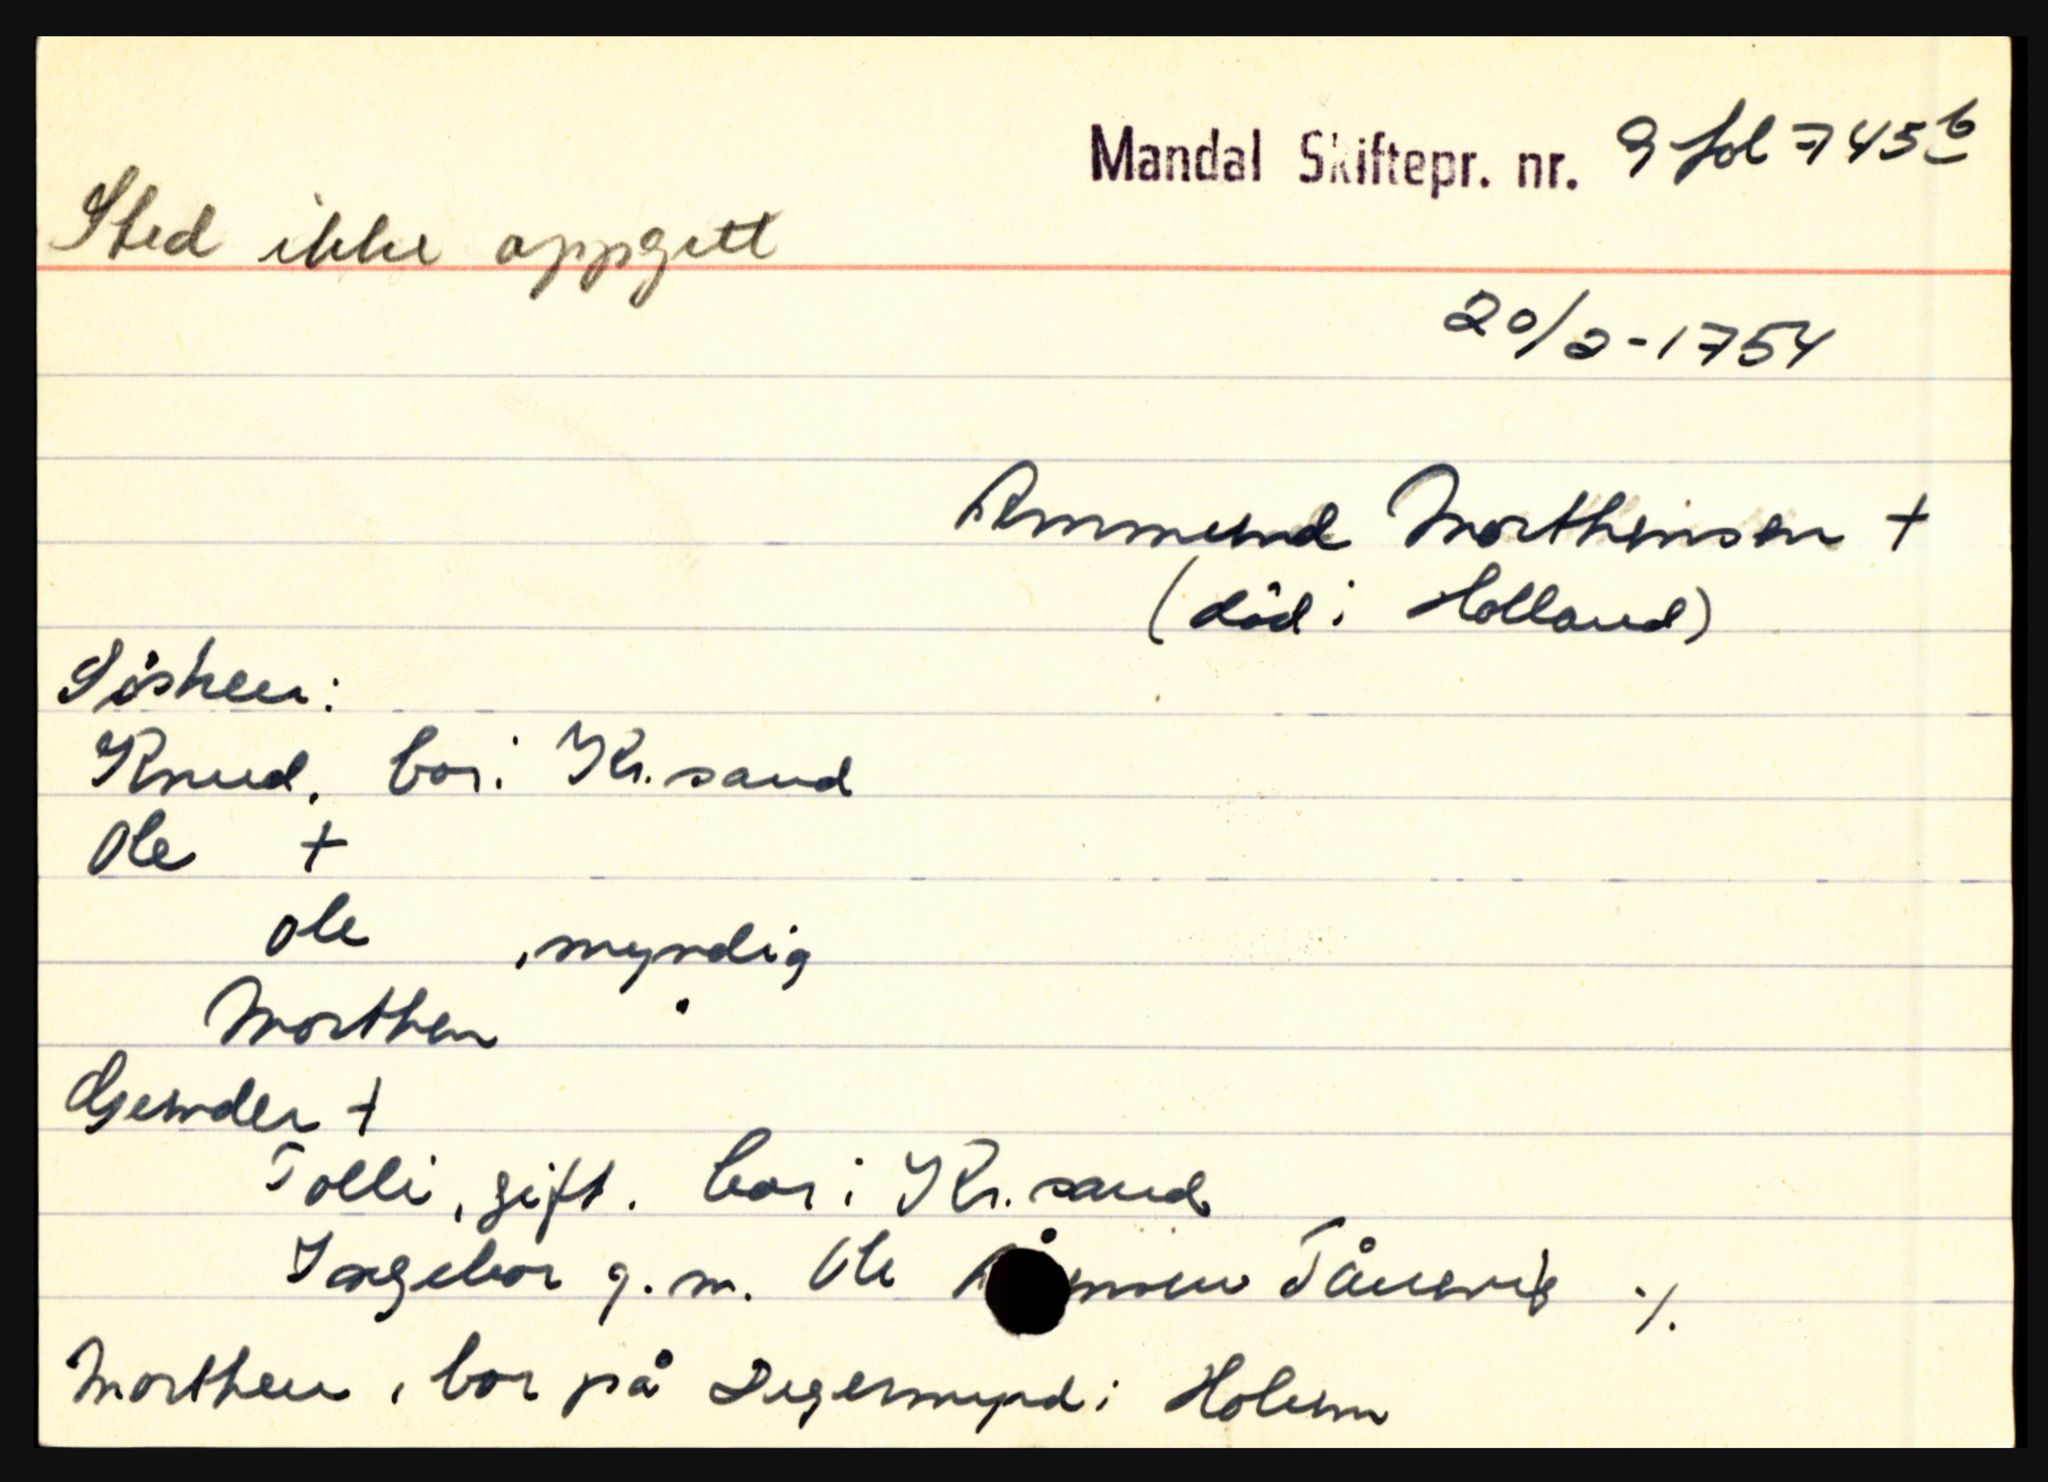 Mandal Skiftepr. nr. 9 fol 745b
Sted ikke oppgitt
20/2-1754
Ammund Morthensen +
(död i Holland)
Søsken:
Knud, bor i Kr.sand
Ole +
Ole , myndig
Morthen "
Gunder +
Tolli, gift. bor i Kr.sand
Ingebor g. m. Ole Tånevig ./.
Morthen, bor på Degernupd i Holum